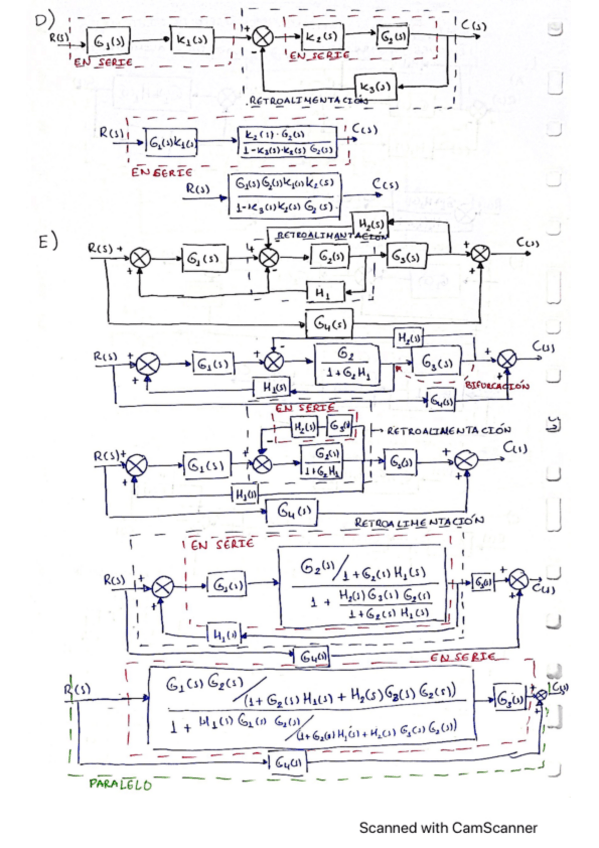 D)
R(s) G₁(s) K₁(s) + - K₂(s) G₂(s) C(s)
EN SERIE EN SERIE
K₃(s)
RETROALIMENTACIÓN
R(s) G₁(s)K₁(s) K₂(s)·G₂(s) / 1-K₃(s)·K₂(s) G₂(s) C(s)
EN SERIE
R(s) G₁(s)G₂(s)K₁(s)K₂(s) / 1-K₃(s)K₂(s) G₂(s) C(s)
E)
H₂(s)
RETROALIMANTACIÓN
R(s) + G₁(s) + - G₂(s) G₃(s) + C(s)
+ - +
H₁
G₄(s)
H₂(s)
R(s) + G₁(s) + - G₂ / 1+G₂H₁ G₃(s) + C(s)
+ H₁(s) + BIFURCACIÓN
G₄(s)
EN SERIE
H₂(s) G₃(s) RETROALIMENTACIÓN
R(s) + G₁(s) + - G₂(s) / 1+G₂H₁ G₃(s) + C(s)
+ H₁(s) +
G₄(s)
RETROALIMENTACIÓN
EN SERIE
R(s) + G₁(s) G₂(s)/1+G₂(s)H₁(s) / 1 + H₂(s)G₃(s)G₂(s) / 1+G₂(s)H₁(s) G₃(s) + C(s)
+ H₁(s) +
G₄(s)
EN SERIE
R(s) G₁(s)G₂(s)/(1+G₂(s)H₁(s)+H₂(s)G₃(s)G₂(s)) G₃(s) + C(s)
1 + H₁(s)G₁(s)G₂(s)/(1+G₂(s)H₁(s)+H₂(s)G₃(s)G₂(s)) +
G₄(s)
PARALELO
Scanned with CamScanner